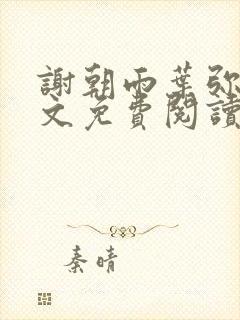 謝朝雨葉弥
文免費閱讀
秦晴